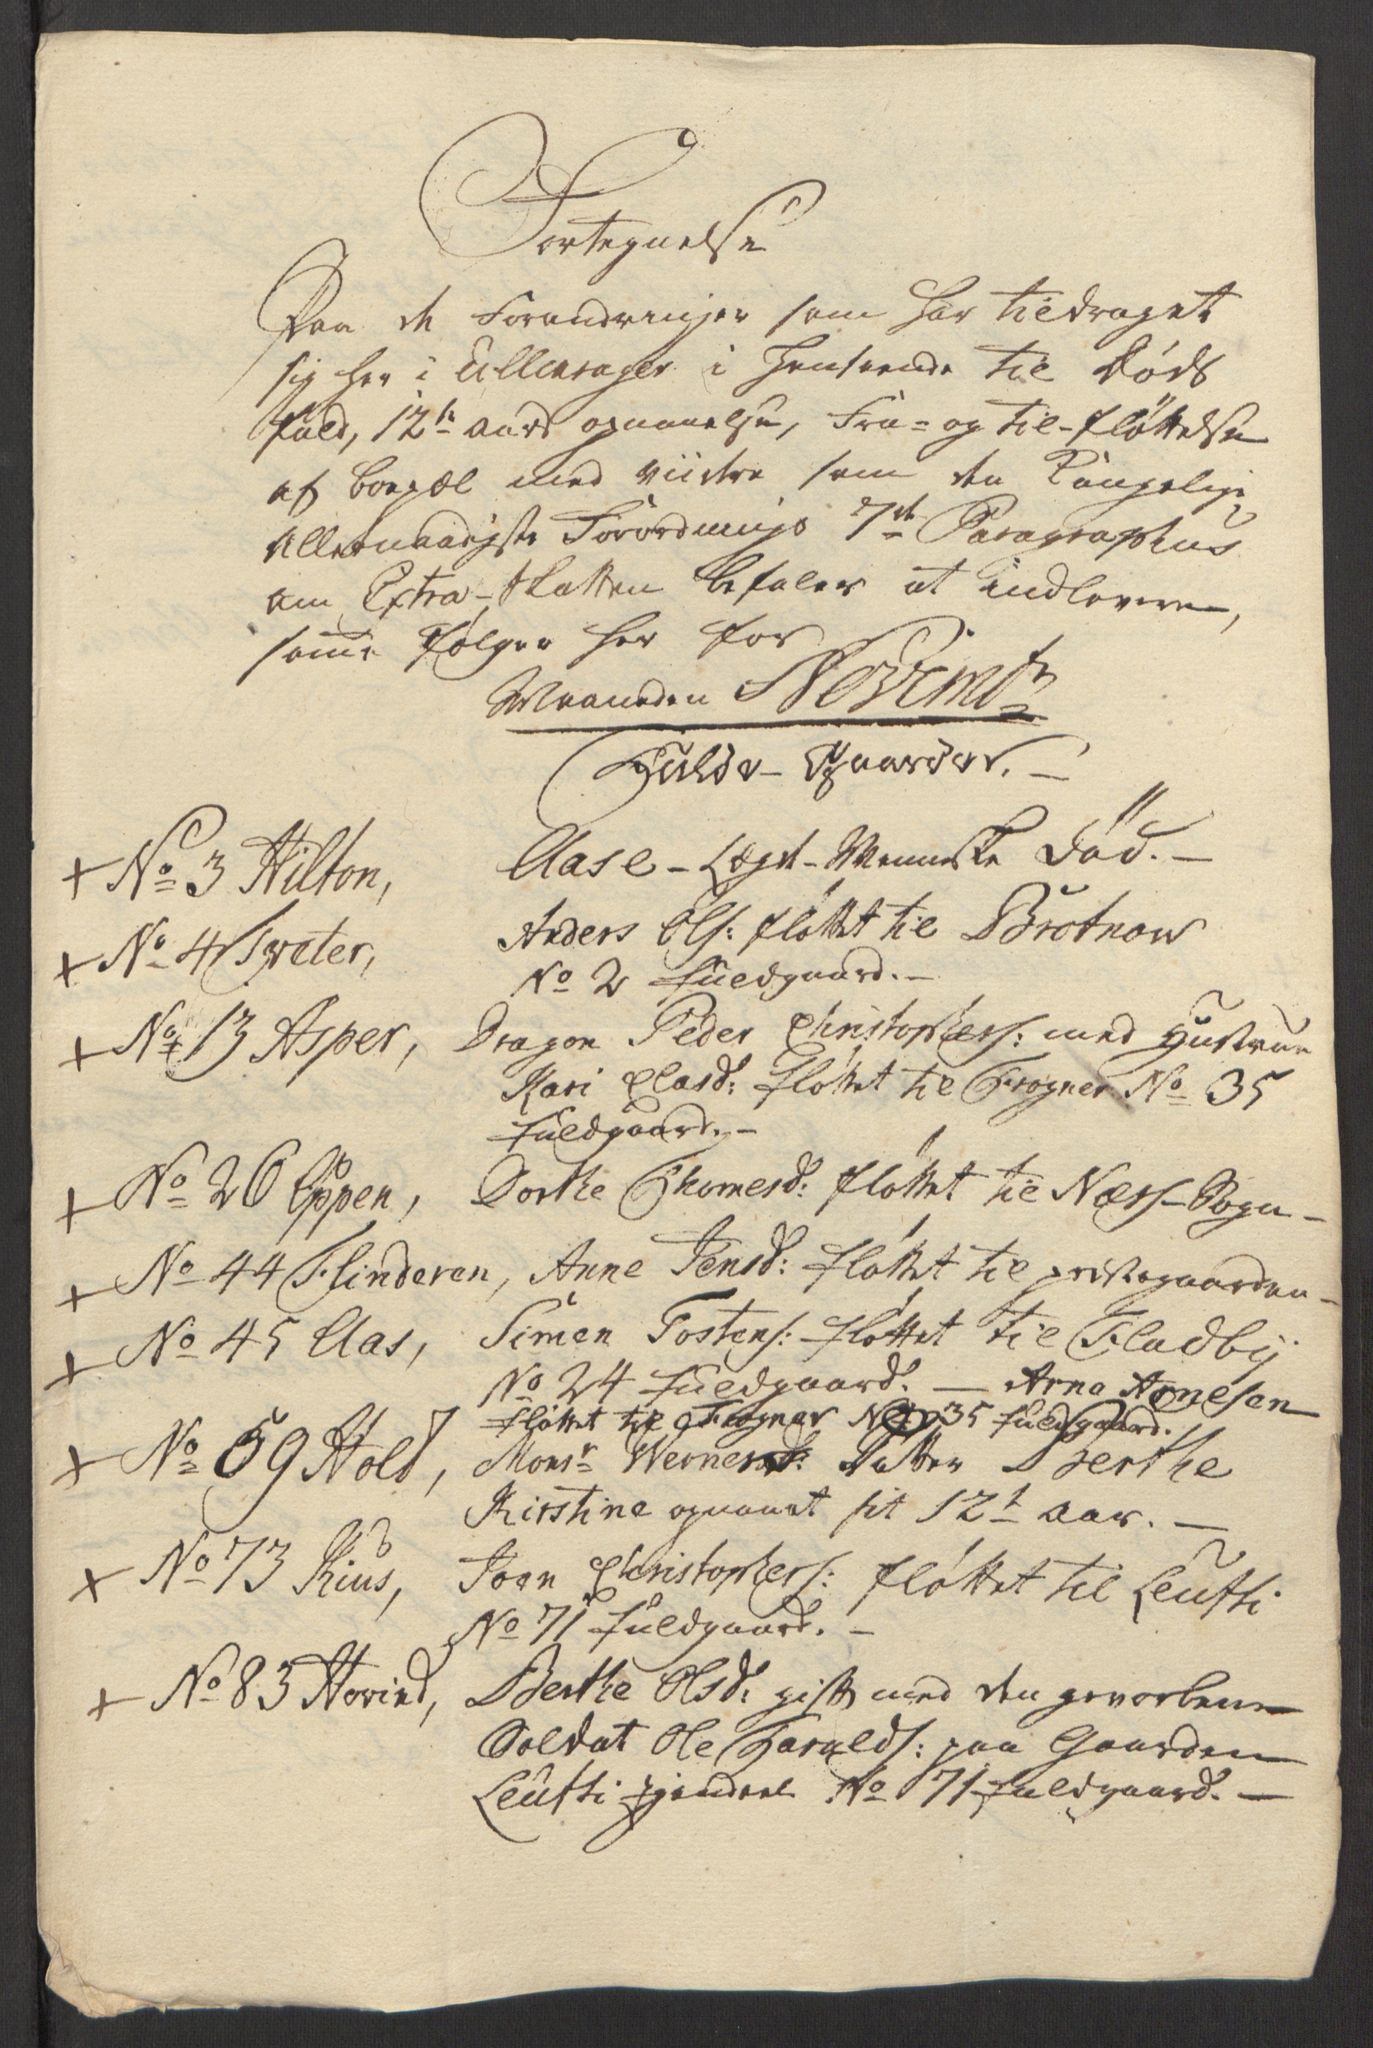 Fortegnelse
Paa de Forandringer som har tildraget
sig her i Ullensager i henseende til Døds
fald, 12te aars opnaaelse, Fra- og til-fløttelse
af boepæl med viidere som den Kongelige
Allernaadigste Forordnings 7de Paragraphus
om Extra-Skatten befaler at indlevere,
samme følger her for
Maaneden Novembr
Fulde-Gaarder. —
+ No 3 Hilton, Aase - Lægd-Menneske død. —
+ No 4 Sreter, Anders Ols: fløttet til Brotnow
No 2 fuldgaard. —
+ No 13 Asper, Dragon Peder Christophers: med Hustrue
Kari Clasd: fløttet til Frogner No 35
fuldgaard. —
+ No 26 Eppen, Dorthe Thomesd: fløttet til Næss-Sogn —
+ No 44 Flinderen, Anne Jensd: fløttet til præstegaarden —
+ No 45 Aas, Simen Tostens: fløttet til Fladbÿ
No 24 fuldgaard. — Arne Arnesen
fløttet til Frogner No 35 fuldgaard.
+ No 69 Hold, Monsr Werners: Datter Berthe
Kirstine opnaaet sit 12te aar. —
+ No 73 Kius, Joen Christophers: fløttet til Leutti
No 71 fuldgaard. —
+ No 83 Hovind, Berthe Olsd: gift med den gevorbene
Soldat Ole Haralds: paa Gaarden
Leutti tjenende No 71 fuldgaard. —